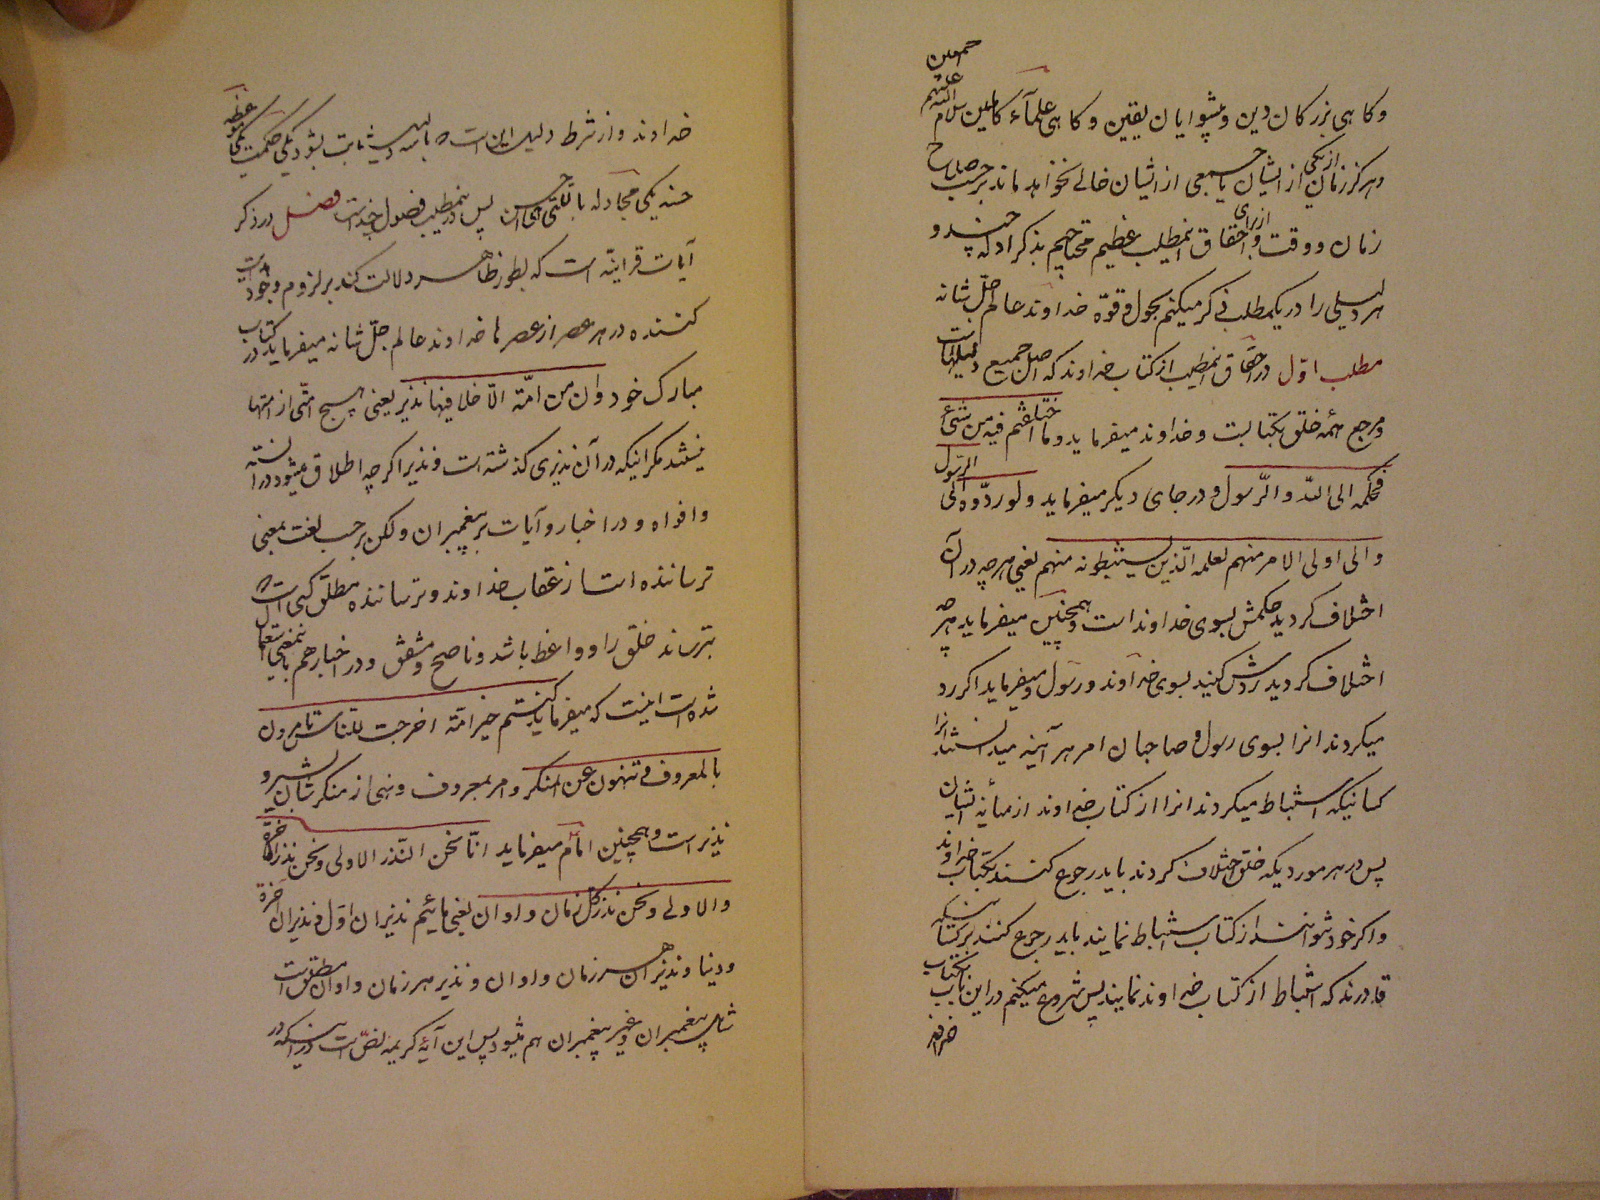 و کاهی بزرکان دین و پیشوایان یقین و کاهی علمآء کاملین سلام الله علیهم اجمعین
و هرکز زمان از یکی از ایشان یا جمعی از ایشان خالی نخواهد ماند بر حسب صلاح
زمان و وقت و از برای احقاق اینمطلب عظیم محتاجیم بذکر ادله چند و
هر دلیلی را در یکمطلب ذکر میکنم بحول و قوّه خداوند عالم جلّ شانه
مطلب اوّل در احقاق اینمطلب از کتاب خداوند که اصل جمیع دلیلهاست
و مرجع همه خلق بکتابست و خداوند میفرماید و ما اختلفتم فیه من شئ
فحکمه الی الله و الرّسول و در جای دیکر میفرماید و لو ردّوه الی الرّسول
و الی اولی الامر منهم لعلمه الّذین یستنبطونه منهم یعنی هرچه در آن
اختلاف کردید حکمش بسوی خداوند است و همچنین میفرماید هرچه
اختلاف کردید ردّش کنید بسوی خداوند و رسول و میفرماید اکر رد
میکردند انرا بسوی رسول و صاحبان امر هر آینه میدانستند انرا
کسانیکه استنباط میکردند انرا از کتاب خداوند از میانه ایشان
پس در هر موردیکه خلق اختلاف کردند باید رجوع کنند بکتاب خداوند
و اکر خود نتوانند از کتاب استنباط نمایند باید رجوع کنند بر کسانیکه
قادرند که استنباط از کتاب خداوند نمایند پس شروع میکنم در این باب بکتاب
خداوند و از شرط دلیل این است که باسه دلیل ثابت بشود یکی حکمت یکی موعظه
حسنه یکی مجادله بالّتی هی احسن پس در اینمطلب فصول چند است فصل در ذکر
آیات قرانیّه است که بطور ظاهر دلالت کند بر لزوم وجود
کننده در هر عصر از عصرها خداوند عالم جلّ شانه میفرماید در کتاب
مبارک خود و ان من امّة الّا خلا فیها نذیر یعنی هیچ امّتی از امّتها
نیستند مکر اینکه در آن نذیری کذشته است و نذیر اکرچه اطلاق میشود در السنه
و افواه و در اخبار و آیات بر پیغمبران ولکن بر حسب لغت بمعنی
ترساننده است از عقاب خداوند و ترساننده مطلق کسی است که
بترساند خلق را و واعظ باشد و ناصح و مشفق و در اخبار هم باینمعنی استعمال
شده است اینست که میفرماید کنتم خیر امّة اخرجت للنّاس تامرون
بالمعروف و تنهون عن المنکر و امر بمعروف و نهی از منکر شان بشیر و
نذیر است و همچنین امام میفرماید انّا نحن النّذر الاولی و نحن نذر الاخرة
و الاولی و نحن نذر کل زمان و اوان یعنی مائیم نذیران اوّل و نذیران اخرة
و دنیا و نذیران هر زمان و اوان و نذیر هر زمان و اوان مطلق است
شامل پیغمبران و غیر پیغمبران هم میشود پس این آیه کریمه نصّ است در اینکه در